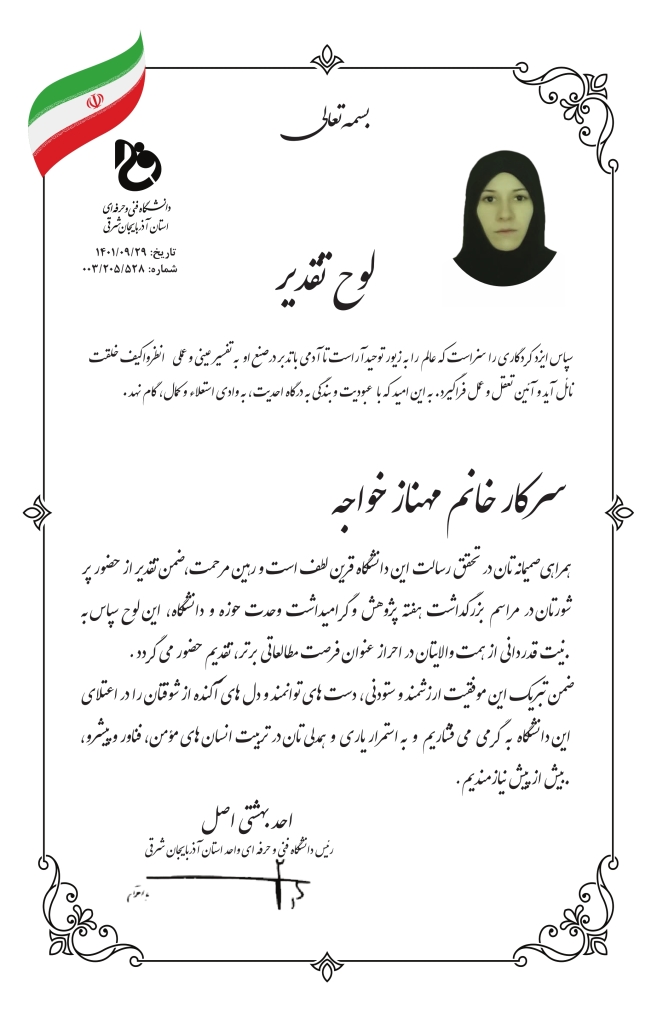 بسمه تعالی
دانشگاه فنی و حرفه ای
استان آذربایجان شرقی
تاریخ: ۱۴۰۱/۰۹/۲۹
شماره: ۰۰۳/۲۰۵/۵۲۸
لوح تقدیر
سپاس ایزد کردگاری را سزاست که عالم را به زیور توحید آراست تا آدمی با تدبر در صنع او به تفسیر عینی و علی انظروا کیف خلقت
نائل آید و آئین تعقل و عمل فراگیرد. به این امید که با عبودیت و بندگی به درگاه احدیت، به وادی استعلاء و کمال، گام نهد.
سرکار خانم مهناز خواجه
همراهی صمیمانه تان در تحقق رسالت این دانشگاه قرین لطف است و رهین مرحمت، ضمن تقدیر از حضور پر
شورتان در مراسم بزرگداشت هفته پژوهش و گرامیداشت وحدت حوزه و دانشگاه، این لوح سپاس به
نیت قدردانی از همت والایتان در احراز عنوان فرصت مطالعاتی برتر، تقدیم حضور می گردد.
ضمن تبریک این موفقیت ارزشمند و ستودنی، دست های توانمند و دل های آکنده از شوقتان را در اعتلای
این دانشگاه به گرمی می فشاریم و به استمرار یاری و همدلی تان در تربیت انسان های مؤمن، فناور و پیشرو،
بیش از پیش نیازمندیم.
احد بهشتی اصل
رئیس دانشگاه فنی و حرفه ای واحد استان آذربایجان شرقی